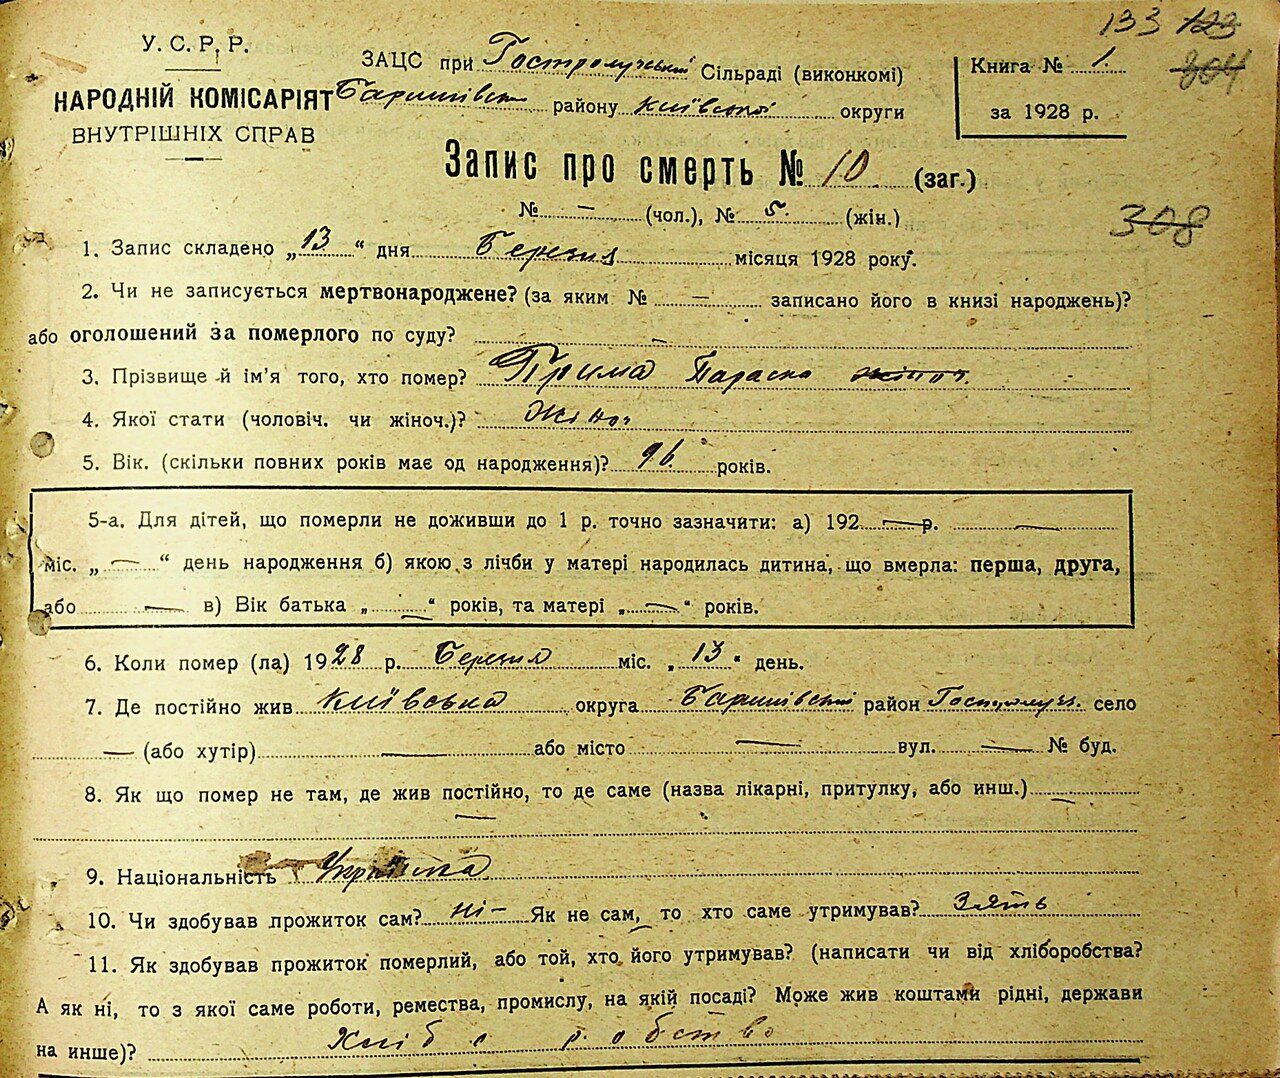 133 123
804
У. С. Р. Р.
НАРОДНІЙ КОМІСАРІЯТ
ВНУТРІШНІХ СПРАВ
ЗАЦС при Гостролучській Сільраді (виконкомі)
Баришівськ району Київської округи
Книга № 1.
за 1928 р.
Запис про смерть № 10 (заг.)
№ — (чол.), № 5. (жін.)
308
1. Запис складено „13“ дня Березня місяця 1928 року.
2. Чи не записується мертвонароджене? (за яким № — записано його в книзі народжень)?
або оголошений за померлого по суду? —
3. Прізвище й ім'я того, хто помер? Прима Параска жіноч.
4. Якої стати (чоловіч. чи жіноч.)? Жіноч
5. Вік. (скільки повних років має од народження)? 96 років.
5-а. Для дітей, що померли не доживши до 1 р. точно зазначити: а) 192 — р. —
міс. „ — “ день народження б) якою з лічби у матері народилась дитина, що вмерла: перша, друга,
або — в) Вік батька „ — “ років, та матері „ — “ років.
6. Коли помер (ла) 1928 р. Березня міс. „13“ день.
7. Де постійно жив Київська округа Баришівський район Гостролуч. село
— (або хутір) — або місто — вул. — № буд.
8. Як що помер не там, де жив постійно, то де саме (назва лікарні, притулку, або инш.) —
—
9. Національність Українка
10. Чи здобував прожиток сам? ні — Як не сам, то хто саме утримував? Зять
11. Як здобував прожиток померлий, або той, хто його утримував? (написати чи від хліборобства?
А як ні, то з якої саме роботи, ремества, промислу, на якій посаді? Може жив коштами рідні, держави
на инше)? Хліборобство